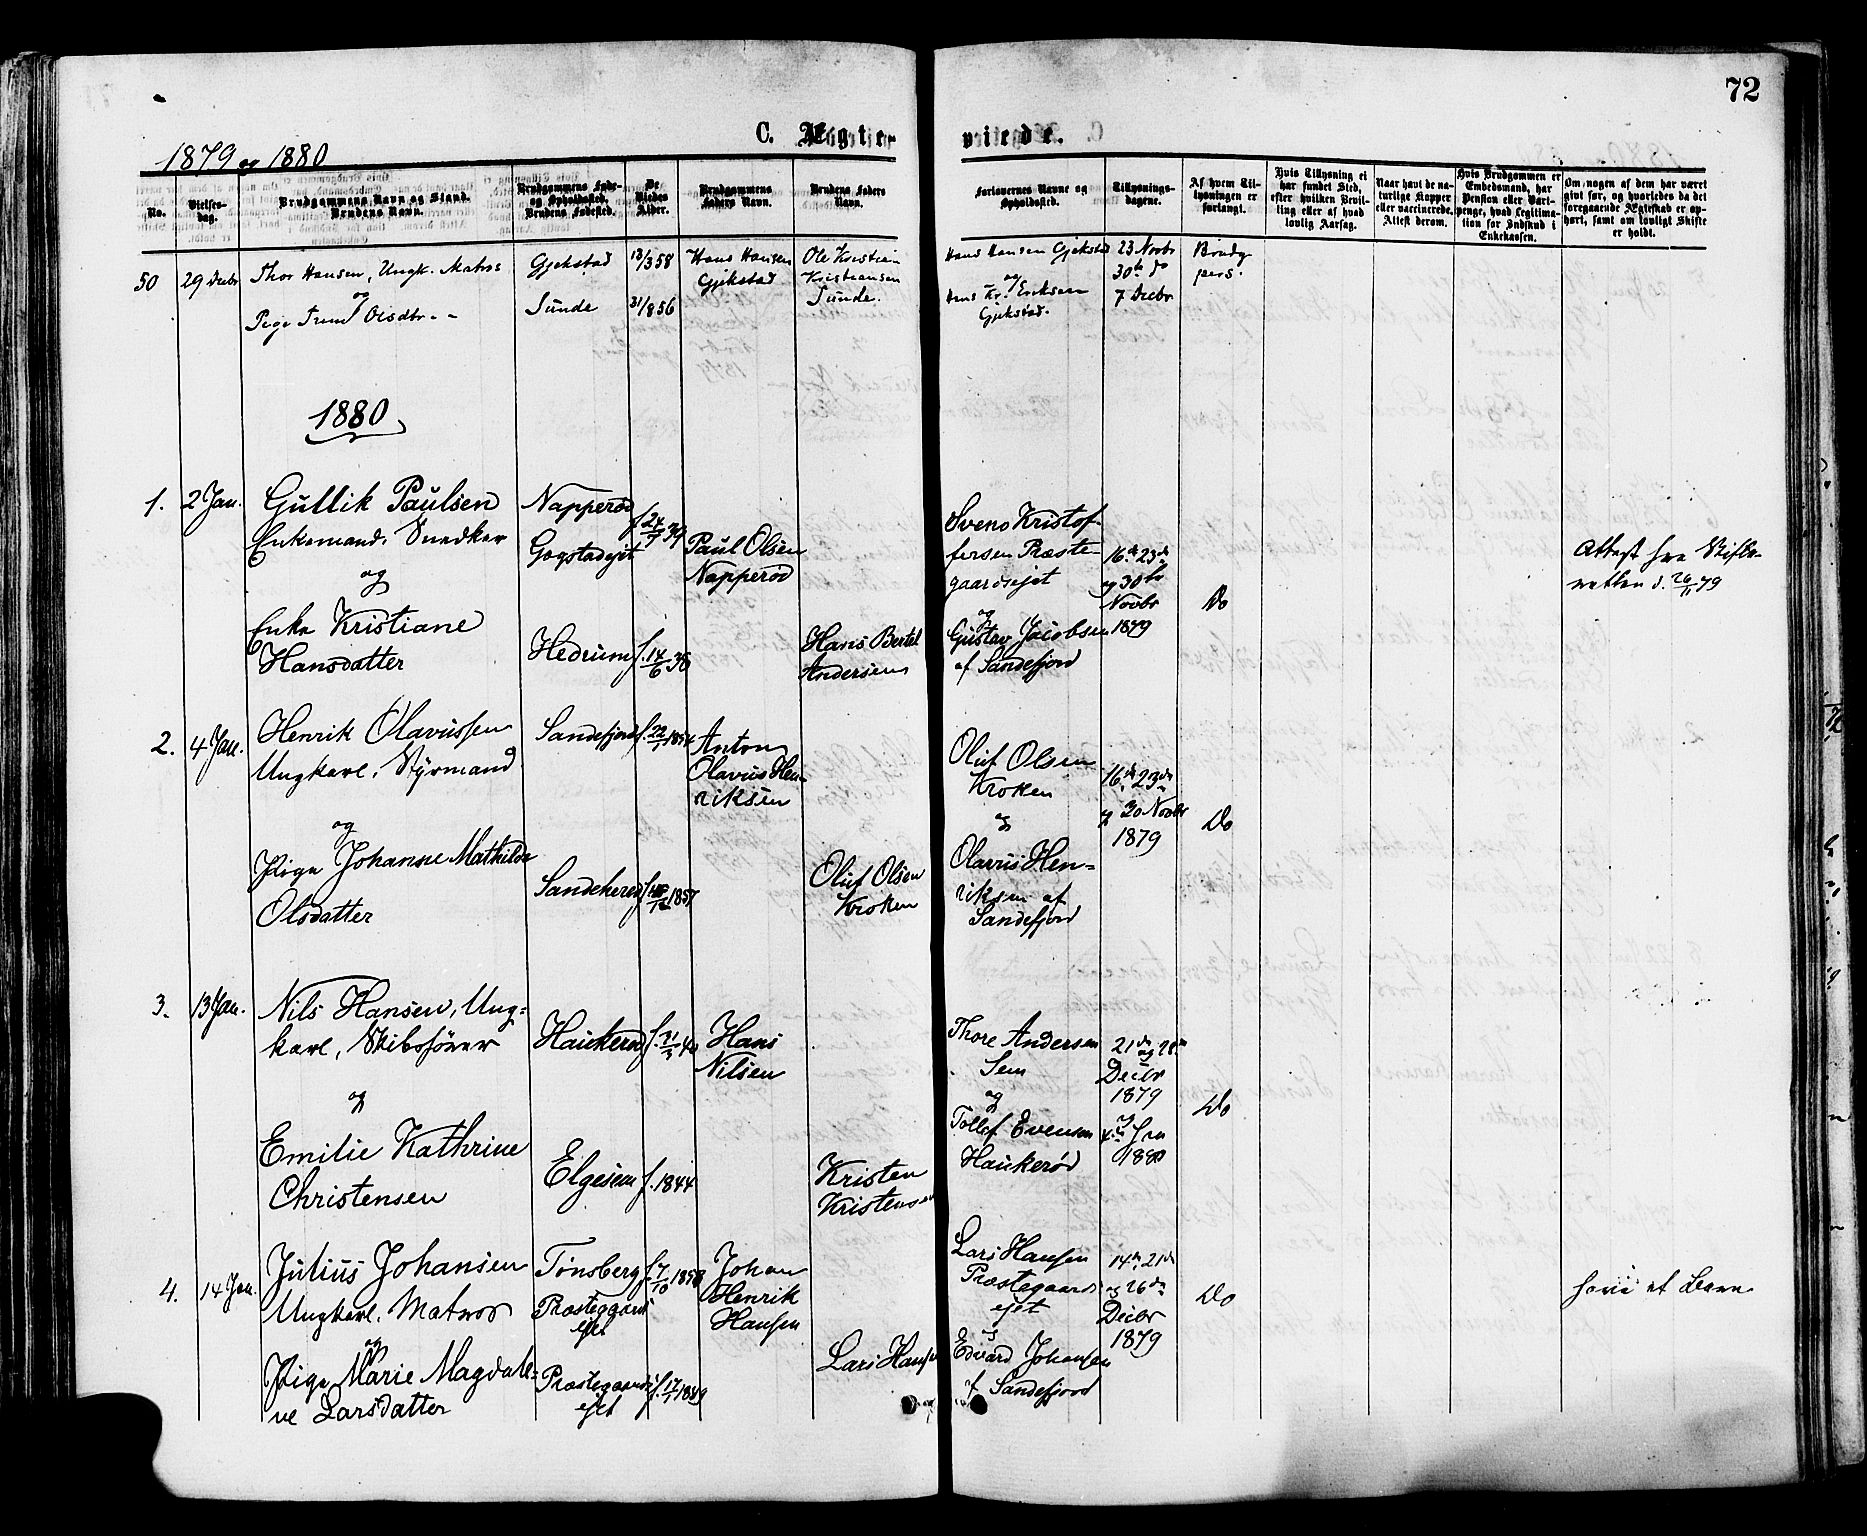 72
1879 og 1880
C. Ægte-
viede.
No.
Vielses-
dag.
Brudgommens Navn og Stand.
Brudens Navn.
Brudgommens Føde-
og Opholdssted.
Brudens Fødested.
De
Viedes
Alder.
Brudgommens
Faders Navn.
Brudens Faders
Navn.
Forlovernes Navne og
Opholdssted.
Tillysnings-
dagene.
Af hvem Til-
lysningen er
forlangt.
Hvis Tillysning ei
har fundet Sted,
efter hvilken Bevil-
ling eller af hvad
lovlig Aarsag.
Naar havt de na-
turlige Kopper
eller vaccinerede.
Attest derom.
Hvis Brudgommen er
Embedsmand, har
Pension eller Vart-
penge, hvad Legitima-
tion for Indskud i
Enkekassen.
Om nogen af dem har været
gift før, og hvorledes da det
foregaaende Ægteskab er op-
hørt, samt om lovligt Skifte
er holdt.
50
29 Decbr
Thor Hansen, Ungk. Matros
og
Pige Olsdtr. - -
Gjekstad
Sunde
13/3 58
31/8 56
Hans Hansen
Gjekstad
Ole Kristian
Kristiansen
Sunde.
Hans Hansen Gjekstad
og
Hans Kr. Eriksen
Gjekstad.
23 Novbr
30te do
7 Decbr
Brudg
pers.
1880
1.
2 Jan.
Gullik Paulsen
Enkemand, Snedker
og
Enke Kristiane
Hansdatter
Napperød
Gogstadejet
Hedrum
f. 24/7 39
f. 14/6 38
Paul Olsen
Napperød
Hans Bertel
Andersen
Svend Kristof-
fersen Præste-
gaardsejet
og
Gustav Jacobsen
af Sandefjord
16de 23de
og 30te
Novbr
1879
Do
Attest fra Skifte-
retten d. 26/11 79
2.
4 Jan.
Henrik Olavussen
Ungkarl, Styrmand
og
Pige Johanne Mathilde
Olsdatter
Sandefjord
Sandeherred
f. 22/1 1854
1857
Anton
Olavus Hen-
riksen
Oluf Olsen
Kroken
Oluf Olsen
Kroken
og
Olavus Hen-
riksen af
Sandefjord
16de 23de
og 30 Novbr
1879
Do
3.
13 Jan.
Nils Hansen, Ung-
karl, Skibsfører
og
Emilie Kathrine
Christensen
Haukerød
Elgesem
f. 21/3 40
f. 1844
Hans
Nilsen
Kristen
Kristensen
Thore Andersen
Sem
og
Tollef Evensen
Haukerød
21de og 28de
Decbr
1879
og
4de Jan
1880
Do
4.
14 Jan.
Julius Johansen
Ungkarl, Matros
og
Pige Marie Magdale-
ne Larsdatter
Tønsberg
Præstegaards
ejet
Præstegaards
ejet
f. 7/10 1858
f. 17/1 1849
Johan
Henrik
Hansen
Lars Hansen
Lars Hansen
Præstegaards
ejet
og
Edvard Johansen
af Sandefjord
14de, 21de
og 26de
Decbr
1879
Do
have et Barn